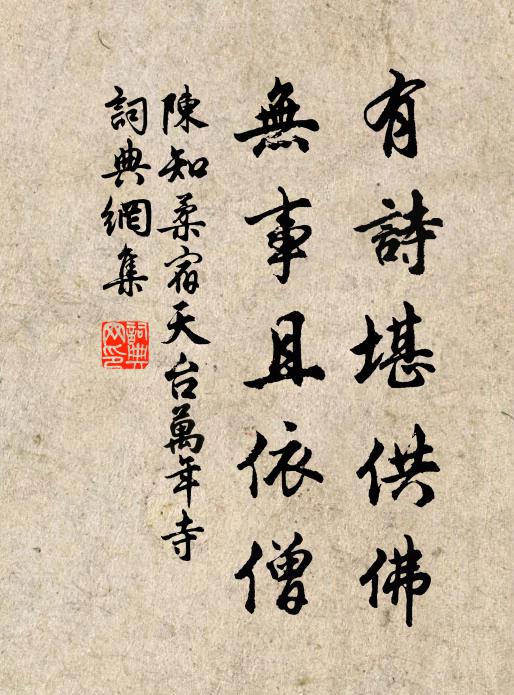 有詩堪供佛
無事且依僧
陳知柔宿天台萬年寺
詞典網集
詞典網印